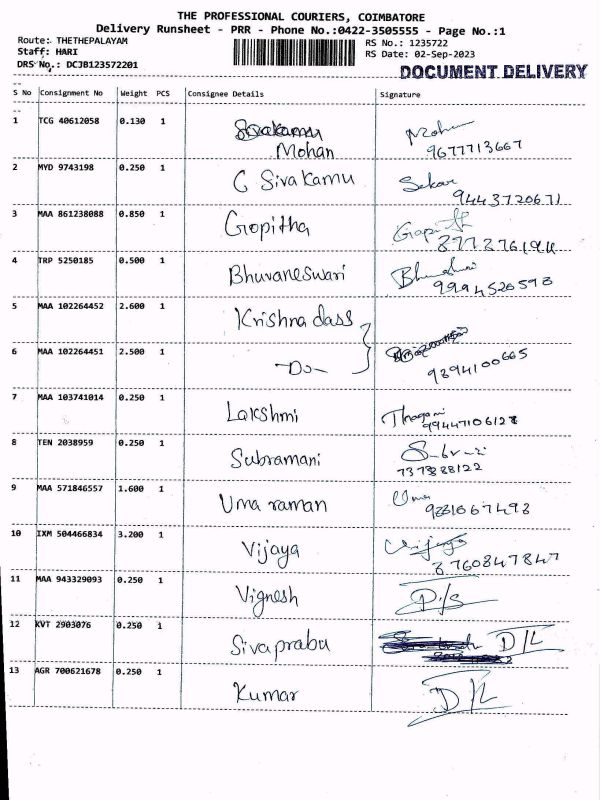 THE PROFESSIONAL COURIERS, COIMBATORE
Delivery Runsheet - PRR - Phone No.:0422-3505555 - Page No.:1
Route: THETHEPALAYAM
RS No.: 1235722
Staff: HARI
RS Date: 02-Sep-2023
DRS No.: DCJB123572201
DOCUMENT DELIVERY
S No Consignment No Weight PCS Consignee Details Signature
1 TCG 40612058 0.130 1 Mohan Mohan
9677713667
2 MYD 9743198 0.250 1 C Sivakamu Sekar
9443720671
3 MAA 861238088 0.850 1 Gopitha
4 TRP 5250185 0.500 1 Bhuvaneswari
9994520598
5 MAA 102264452 2.600 1 Krishna dass
6 MAA 102264451 2.500 1 -Do-
9894100665
7 MAA 103741014 0.250 1 Lakshmi
8 TEN 2038959 0.250 1 Subramani
9 MAA 571846557 1.600 1 Uma raman Uma
10 IXM 504466834 3.200 1 Vijaya Vijaya
8760847847
11 MAA 943329093 0.250 1 Vignesh
12 KVT 2903076 0.250 1 Sivaprabu D/L
13 AGR 700621678 0.250 1 Kumar D/L